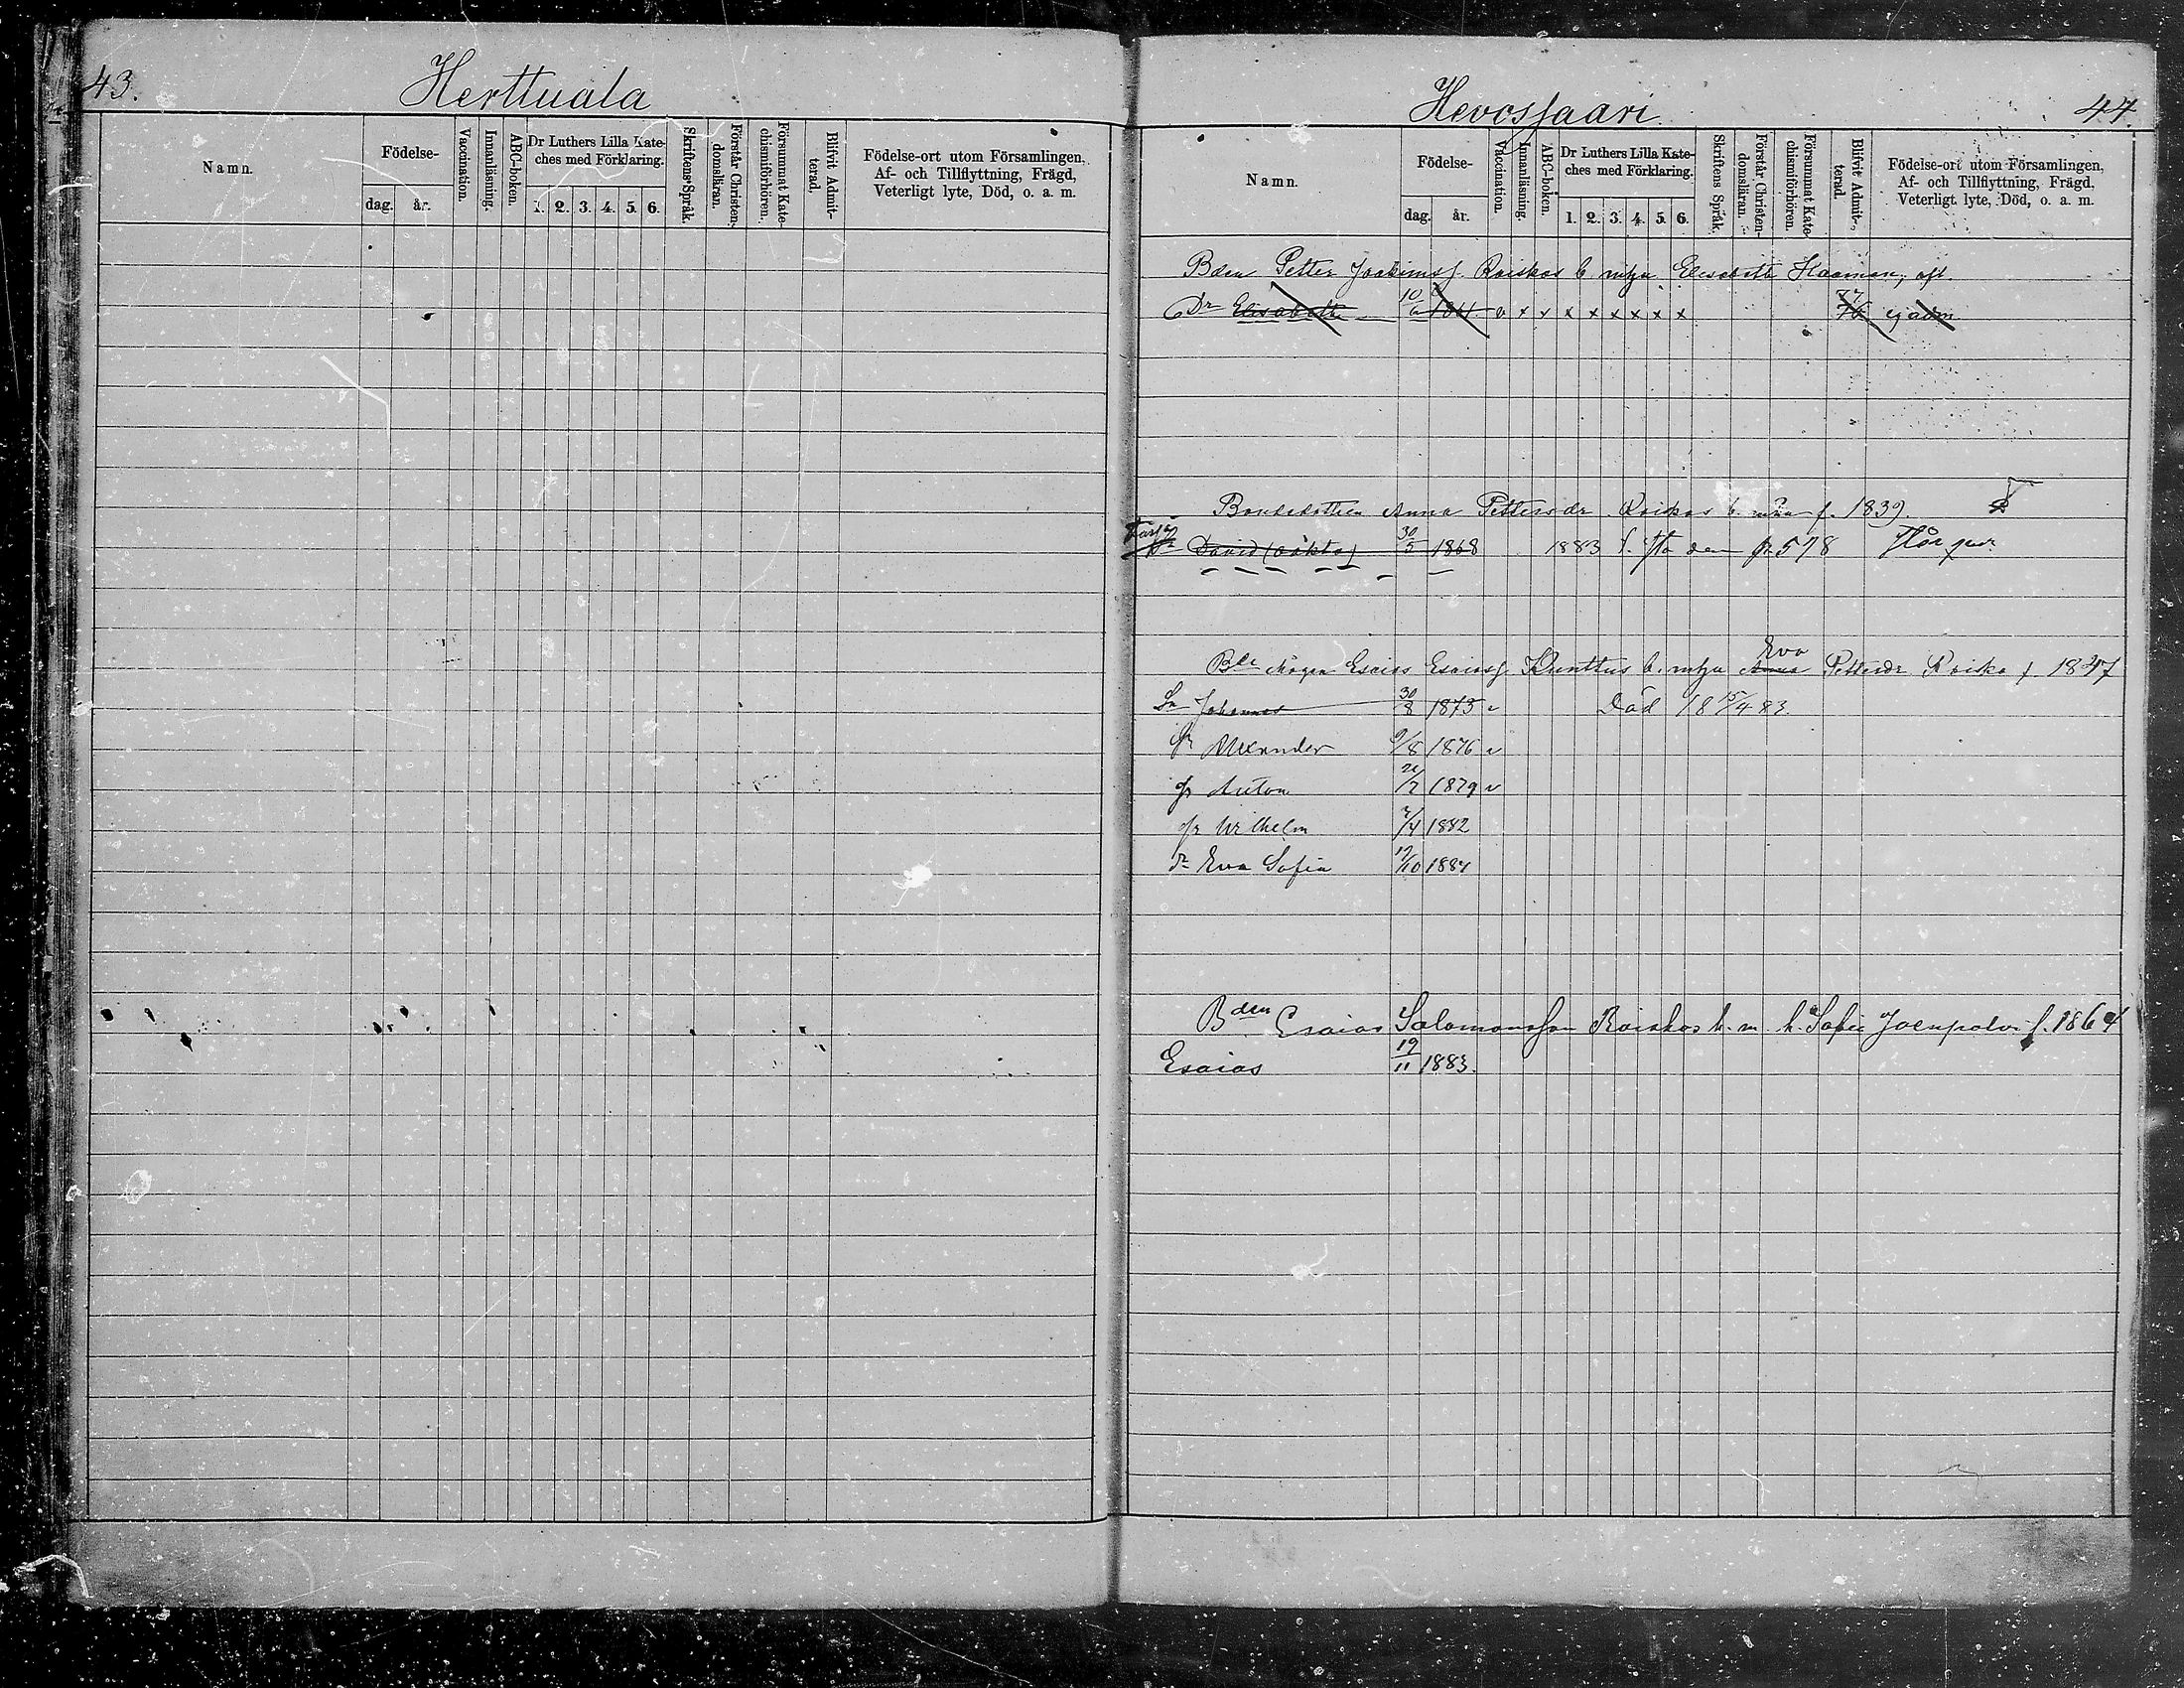 43.
Herttuala
Namn.
Födelse-
dag.
år.
Vaccination.
Innanläsning.
ABC-boken.
Dr Luthers Lilla Kate-
ches med Förklaring.
1. 2. 3. 4. 5. 6.
Skriftens Språk.
Förstår Christen-
domsläran.
Försummat Kate-
chismiförhören.
Blifvit Admit-
terad.
Födelse-ort utom Församlingen,
Af- och Tillflyttning, Frägd,
Veterligt lyte, Död, o. a. m.
Hevossaari
44.
Namn.
Födelse-
dag.
år.
Vaccination.
Innanläsning.
ABC-boken.
Dr Luthers Lilla Kate-
ches med Förklaring.
1. 2. 3. 4. 5. 6.
Skriftens Språk.
Förstår Christen-
domsläran.
Försummat Kate-
chismiförhören.
Blifvit Admit-
terad.
Födelse-ort utom Församlingen,
Af- och Tillflyttning, Frägd,
Veterligt lyte, Död, o. a. m.
Bden Petter Joakimsf. Roiskos b. mhu Elisabeth
Dr Elisabeth 10/6 v x x x x x x x x ej adm
Bondedottren Anna Pettersdr Roikos f. 1839.
David (oäkta) 30/5 1868 1883 578
Bde mågen Esaias Esaiasf. Kunttus b. mhu Anna Eva Pettersdr Roiko f. 1847
Sn Johannes 30/8 1873 v Död 18 15/4 83.
Alexander 9/8 1876 v
Anton 21/7 1879 v
Wilhelm 7/4 1882
Dr Eva Sofia 19/10 1884
Bden Esaias Salomonsson Roiskos h. m. h. Sofia f. 1864
Esaias 19/11 1883.